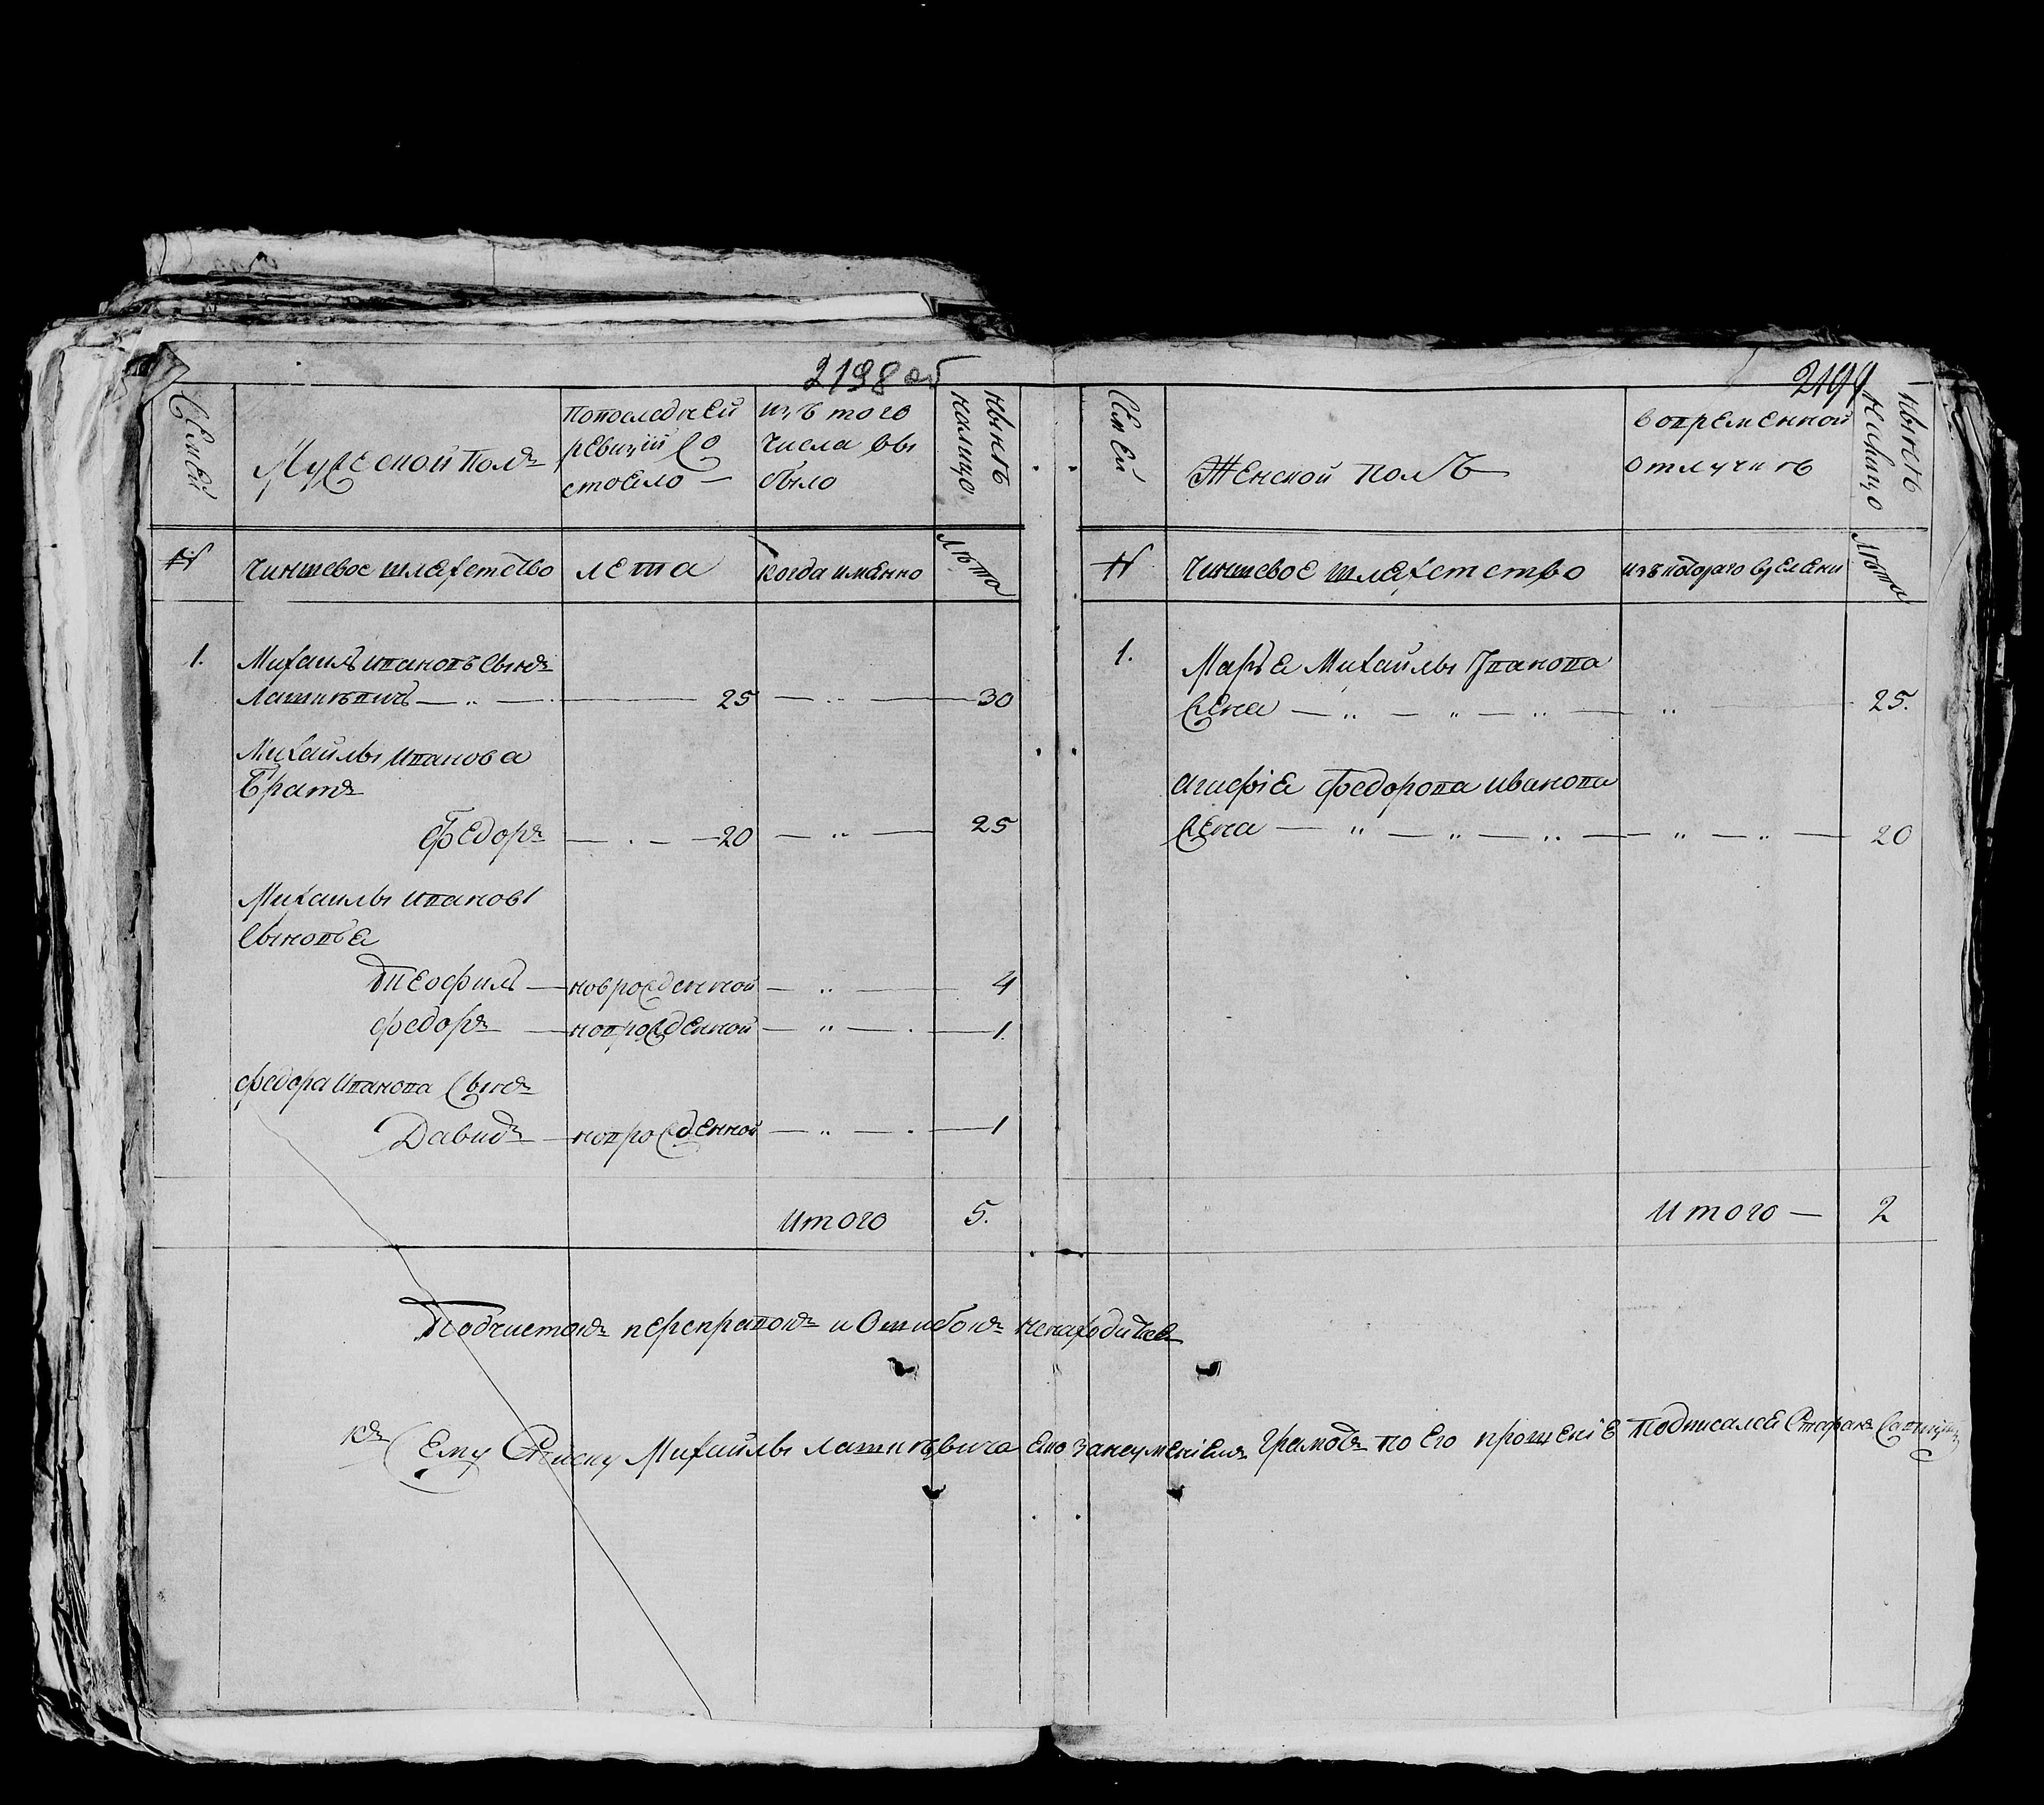 2198 об
Семей
Мужеской полъ
попоследней
ревизiи со
стоело —
изъ того
числа вы
было
нынѣ
налицо
№
Чиншевое шляхетство
лета
когда имянно
лѣта
1.
Михаилъ Ивановъ сынъ
— 25 — 30
Михайлы Иванова
братъ
Федоръ — 20 — 25
Михаилы Иванова
сыновья
Теофилъ — новрожденной — 4
Федоръ — новрожденной — 1.
Федора Иванова сынъ
Давидъ — новрожденной — 1
Итого 5.
2199
Семей
Женской полъ
вовременной
отлучкѣ
нынѣ
налицо
№
Чиншевое шляхетство
изъ котораго времени
лѣта
1.
Марья Михайлы Иванова
жена — 25.
Агафiя Федорова Иванова
жена — 20
Итого — 2
Подчистокъ переправокъ и ошибокъ ненаходится
Къ сему списку Михайлы его занеумѣнiемъ грамотѣ по его прошенiе подписался